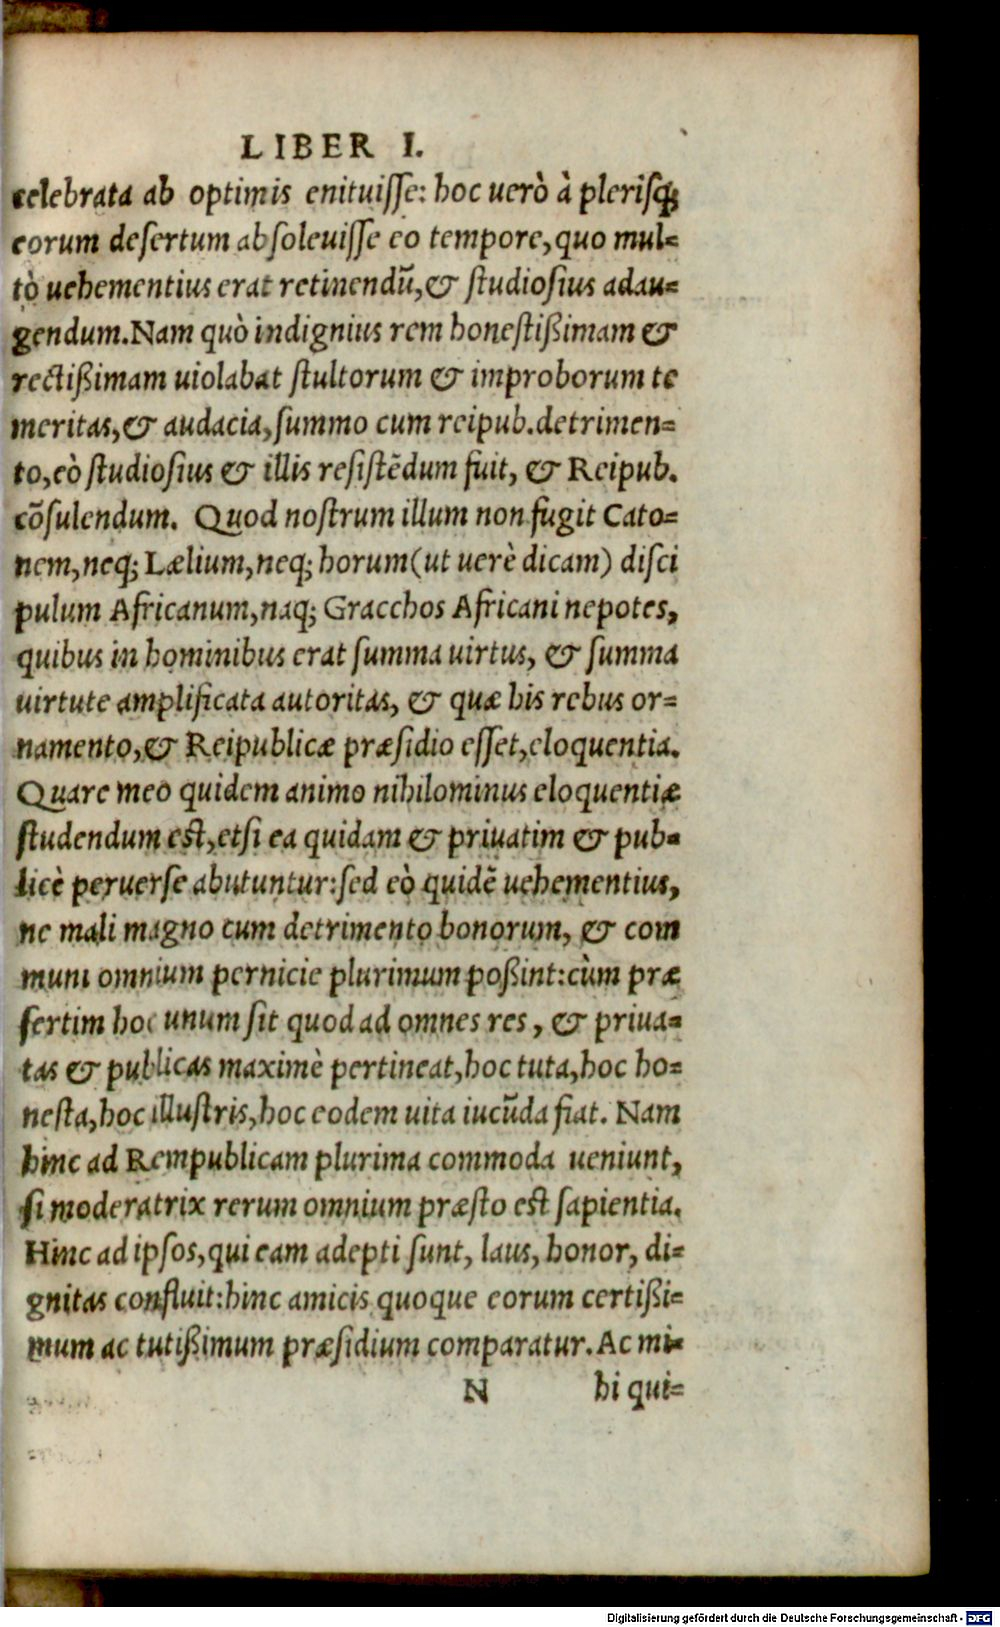 LIBER I.
celebrata ab optimis enituisse: hoc uerò à plerisq;
eorum desertum absoleuisse eo tempore, quo mul-
tò uehementius erat retinendũ, & studiosius adau-
gendum. Nam quò indignius rem honestißimam &
rectißimam uiolabat stultorum & improborum te
meritas, & audacia, summo cum reipub. detrimen-
to, eò studiosius & illis resistẽdum fuit, & Reipub.
cõsulendum. Quod nostrum illum non fugit Cato-
nem, neq; Lælium, neq; horum (ut uerè dicam) disci
pulum Africanum, naq; Gracchos Africani nepotes,
quibus in hominibus erat summa uirtus, & summa
uirtute amplificata autoritas, & quæ his rebus or-
namento, & Reipublicæ præsidio esset, eloquentia.
Quare meo quidem animo nihilominus eloquentiæ
studendum est, etsi ea quidam & priuatim & pub-
licè peruerse abutuntur: sed eò quidẽ uehementius,
ne mali magno cum detrimento bonorum, & com
muni omnium pernicie plurimum poßint: cùm præ
sertim hoc unum sit quod ad omnes res, & priua-
tas & publicas maximè pertineat, hoc tuta, hoc ho-
nesta, hoc illustris, hoc eodem uita iucũda fiat. Nam
hinc ad Rempublicam plurima commoda ueniunt,
si moderatrix rerum omnium præsto est sapientia.
Hinc ad ipsos, qui eam adepti sunt, laus, honor, di-
gnitas confluit: hinc amicis quoque eorum certißi-
mum ac tutißimum præsidium comparatur. Ac mi-
N hi qui-
Digitalisierung gefördert durch die Deutsche Forschungsgemeinschaft - DFG